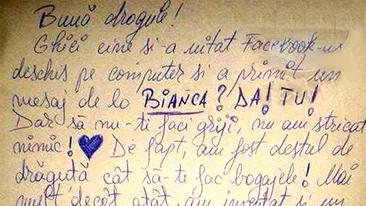 Bună dragule!
Ghici cine și-a uitat Facebook-ul
deschis pe computer și a primit un
mesaj de la BIANCA? DA! TU!
Dar să nu-ți faci griji, nu am stricat
nimic! ♥ De fapt, am fost destul de
drăguță cât să-ți fac bagajele! Mai
mult decât atât, am inventat și un